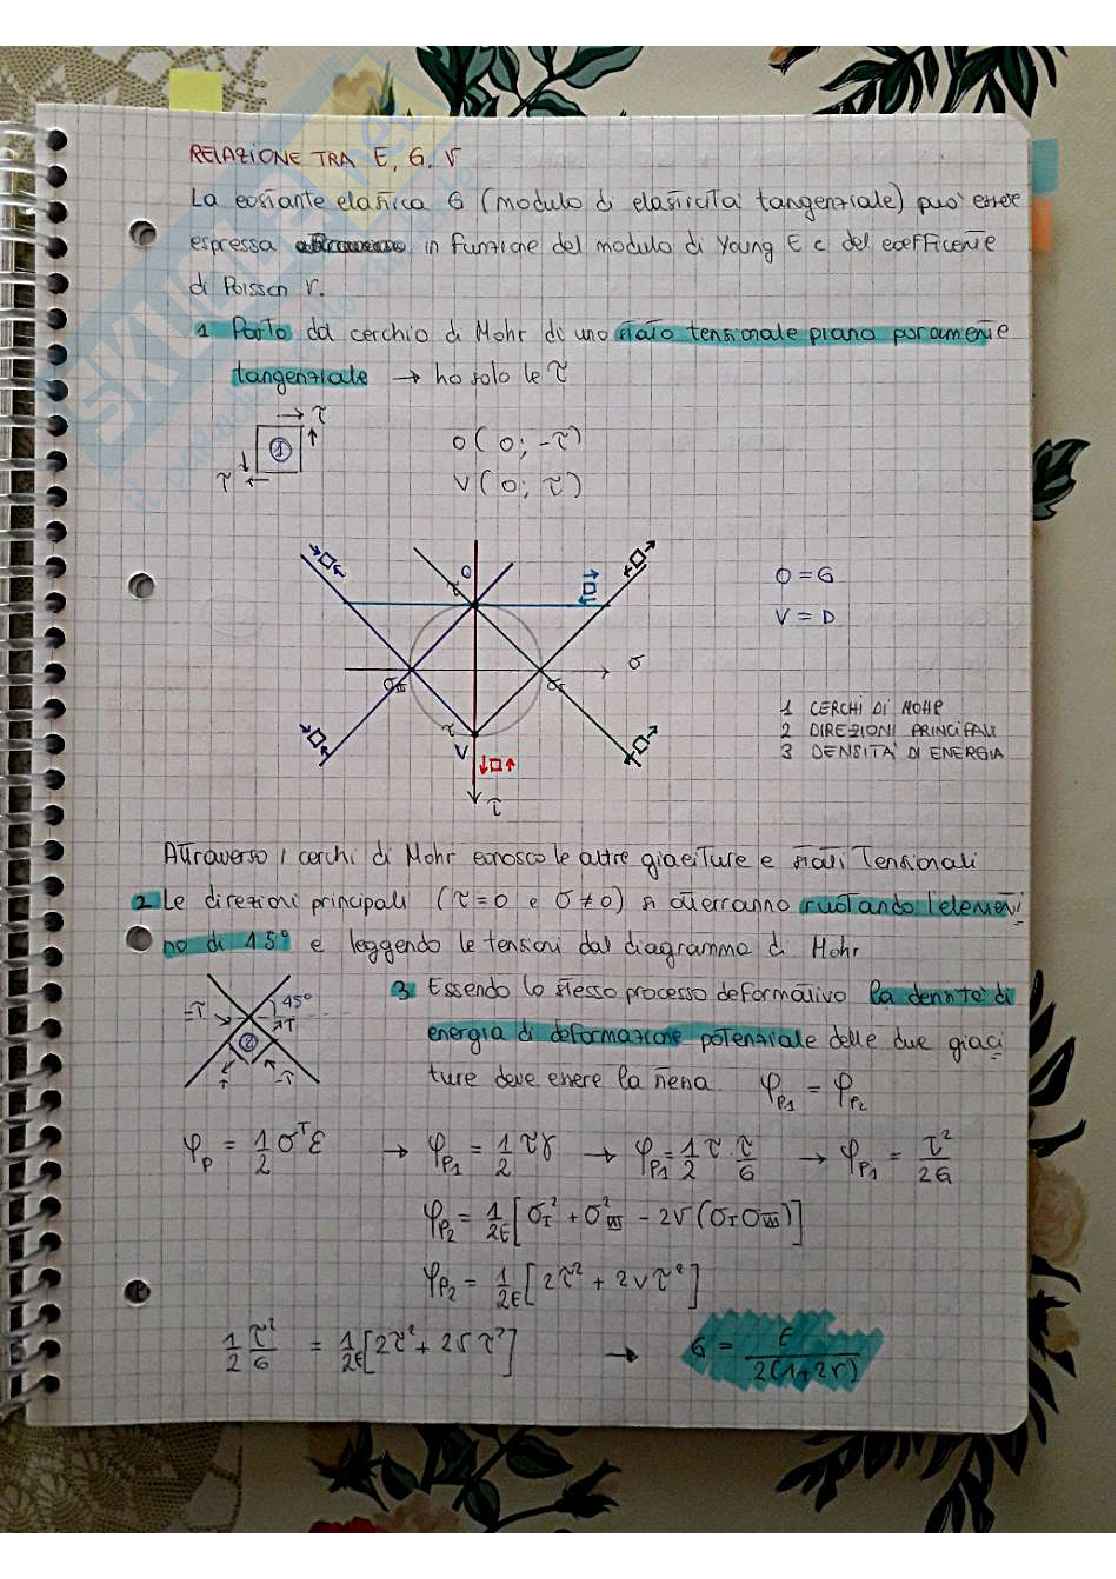 RELAZIONE TRA E, G, ν
La costante elastica G (modulo di elasticità tangenziale) può essere
espressa in funzione del modulo di Young E e del coefficente
di Poisson ν.
1 Parto dal cerchio di Mohr di uno stato tensionale piano puramente
tangenziale → ho solo le τ
τ
1
τ
O(0; -τ)
V(0; τ)
O
O = G
V = D
σ
σII
σI
τ
τ
V
τ
1 CERCHI DI MOHR
2 DIREZIONI PRINCIPALI
3 DENSITA' DI ENERGIA
Attraverso i cerchi di Mohr conosco le altre giaciture e stati tensionali
2 Le direzioni principali (τ=0 e σ≠0) si otterranno ruotando l'elementi
no di 45° e leggendo le tensioni dal diagramma di Mohr
-τ
45°
τ
2
τ
-τ
3 Essendo lo stesso processo deformativo la densità di
energia di deformazione potenziale delle due giaci
ture deve essere la stessa φp1 = φp2
φp = 1/2 σᵀε → φp1 = 1/2 τγ → φp1 = 1/2 τ · τ/G → φp1 = τ²/2G
φp2 = 1/2E [σI² + σIII² - 2ν(σI σIII)]
φp2 = 1/2E [2τ² + 2ντ²]
1/2 τ²/G = 1/2E [2τ² + 2ντ²] → G = E/2(1+2ν)